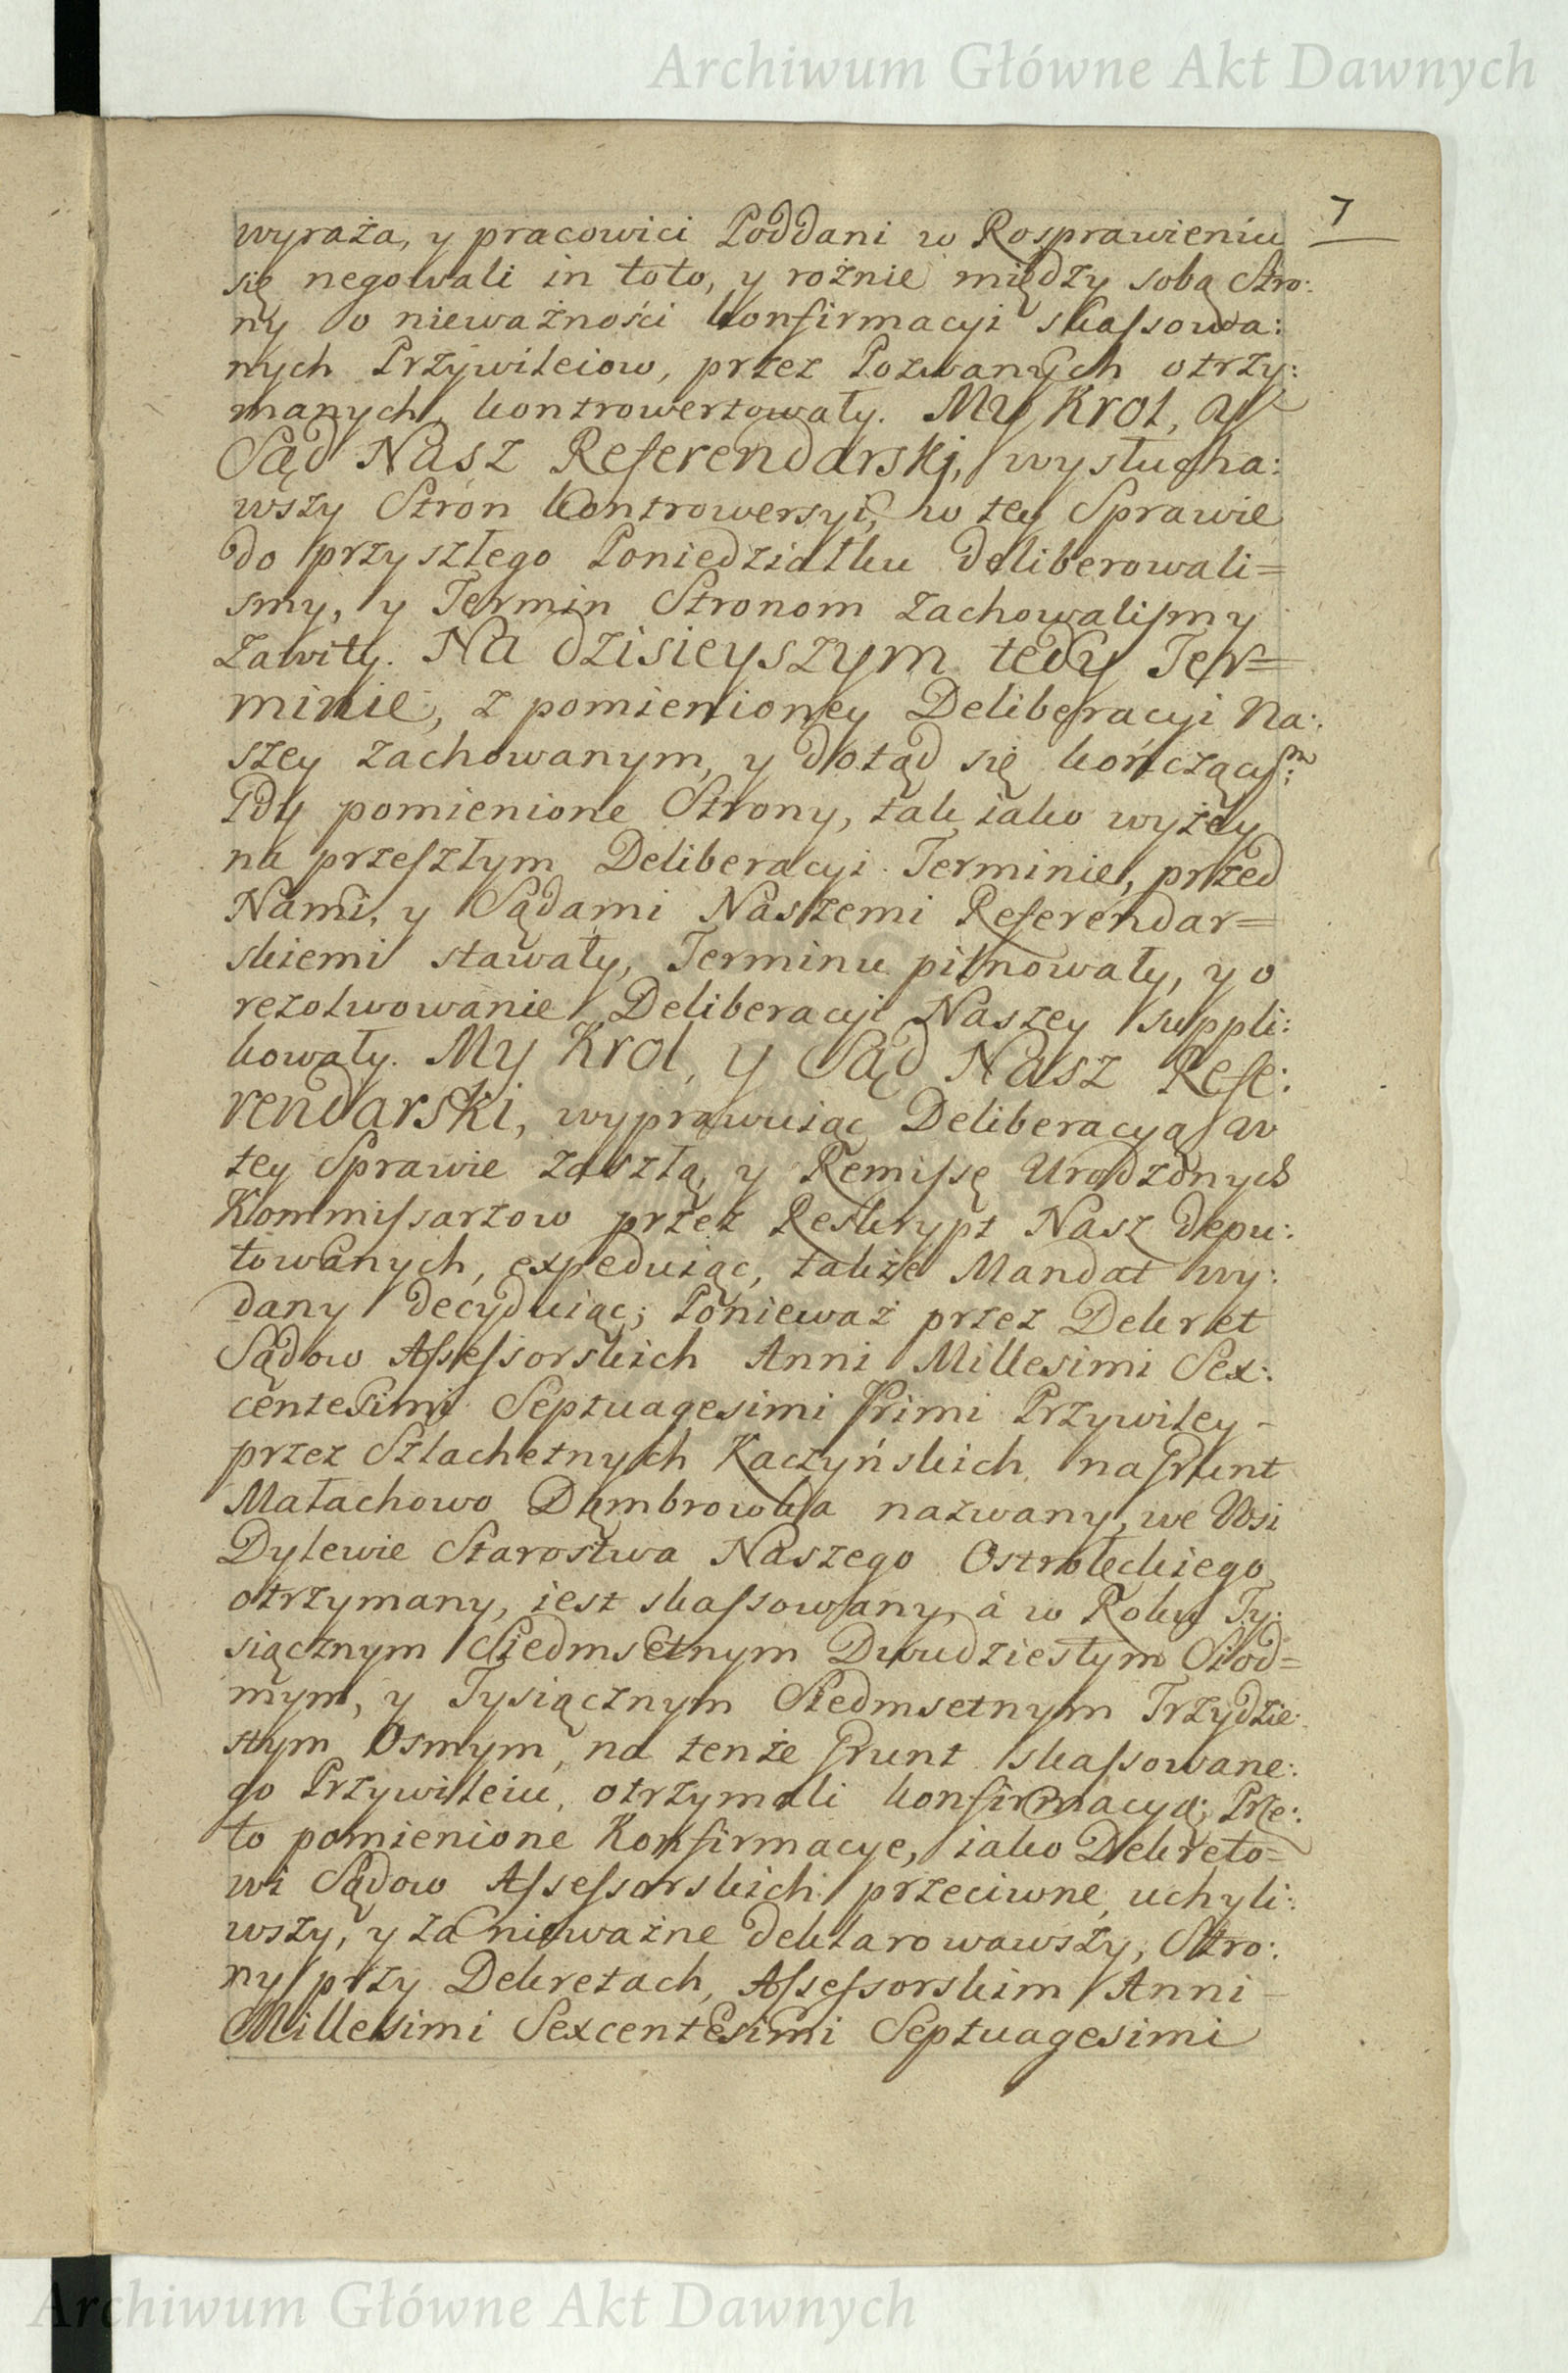 Archiwum Główne Akt Dawnych
7
wyraża, y pracowici Poddani w Rosprawieniu
się negowali in toto, y rożnie między sobą Stro:
ny o nieważności konfirmacyi skassowa:
nych Przywileiow, przez Pozwanych otrzy:
manych, kontrowertowały. My Krol, y
Sąd Nasz Referendarski, wysłucha:
wszy Stron kontrowersyi, w tey Sprawie
do przyszłego Poniedziałku deliberowali=
smy, y Termin Stronom zachowalismy
zawity. Na dzisieyszym tedy Ter=
minie, z pomienioney Deliberacyi Na:
szey zachowanym, y dotąd się kończącym:
gdy pomienione Strony, tak iako wyżey
na przeszłym Deliberacyi Terminie, przed
Nami, y Sądami Naszemi Referendar=
skiemi stawały, Terminu pilnowały, y o
rezolwowanie Deliberacyi Naszey suppli:
kowały. My Krol, y Sąd Nasz Refe:
rendarski, wyprawuiąc Deliberacyą w
tey Sprawie zaszłą, y Remissę Urodzonych
Kommissarzow przez Reskrypt Nasz depu:
towanych, expeduiąc, także Mandat wy:
dany decyduiąc; Ponieważ przez Dekret
Sądow Assessorskich Anni Millesimi Sex:
centesimi Septuagesimi Primi Przywiley -
przez Szlachetnych Kaczyńskich na Grunt
Małachowo Dąmbrowka nazwany, we Wsi
Dylewie Starostwa Naszego Ostrołęckiego
otrzymany, iest skassowany, à w Roku Ty:
siącznym Siedmsetnym Dwudziestym Siod=
mym, y Tysiącznym Siedmsetnym Trzydzie:
stym Osmym, na tenże Grunt skassowane:
go Przywileiu, otrzymali konfirmacyą; Prze:
to pomienione Konfirmacye, iako Dekreto=
wi Sądow Assessorskich przeciwne, uchyli:
wszy, y za nieważne deklarowawszy, Stro:
ny przy Dekretach, Assessorskim Anni -
Millesimi Sexcentesimi Septuagesimi
Archiwum Główne Akt Dawnych